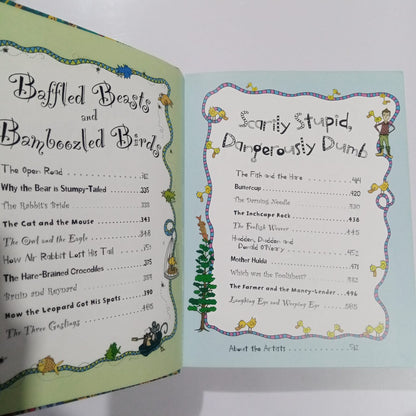 Baffled Beasts
and
Bamboozled Birds
The Open Road
Why the Bear is Stumpy-Tailed 335
The Rabbit's Bride
The Cat and the Mouse 343
The Owl and the Eagle 348
How Air Rabbit Lost His Tail 351
The Hare-Brained Crocodiles
Bruin and Reynard
How the Leopard Got His Spots 390
The Three Goslings
Scarily Stupid,
Dangerously Dumb
The Fish and the Hare
Buttercup 420
The Darning Needle 430
The Inchcape Rock 438
The Foolish Weaver 445
Hudden, Dudden and
Donald O'Neary 452
Mother Hulda
Which was the Foolishest?
The Farmer and the Money-Lender 496
Laughing Eye and Weeping Eye 505
About the Artists 512